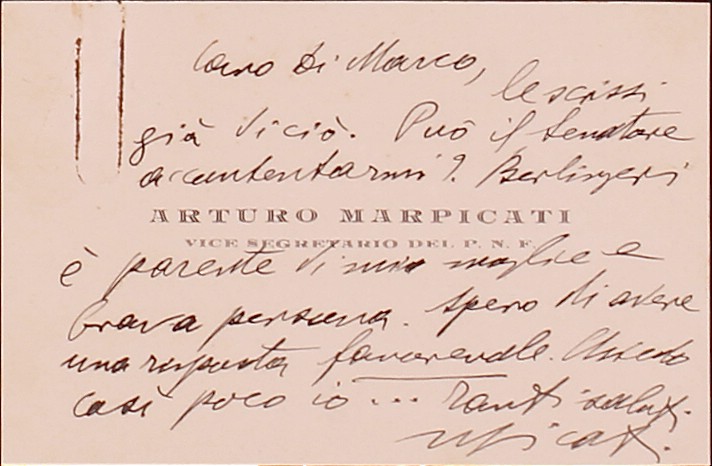 Caro Di Marco,
le scrissi
già di ciò. Può il Senatore
accontentarmi? Berlingeri
ARTURO MARPICATI
VICE SEGRETARIO DEL P. N. F.
è parente di mia moglie e
brava persona. Spero di avere
una risposta favorevole. Chiedo
così poco io... Tanti saluti.